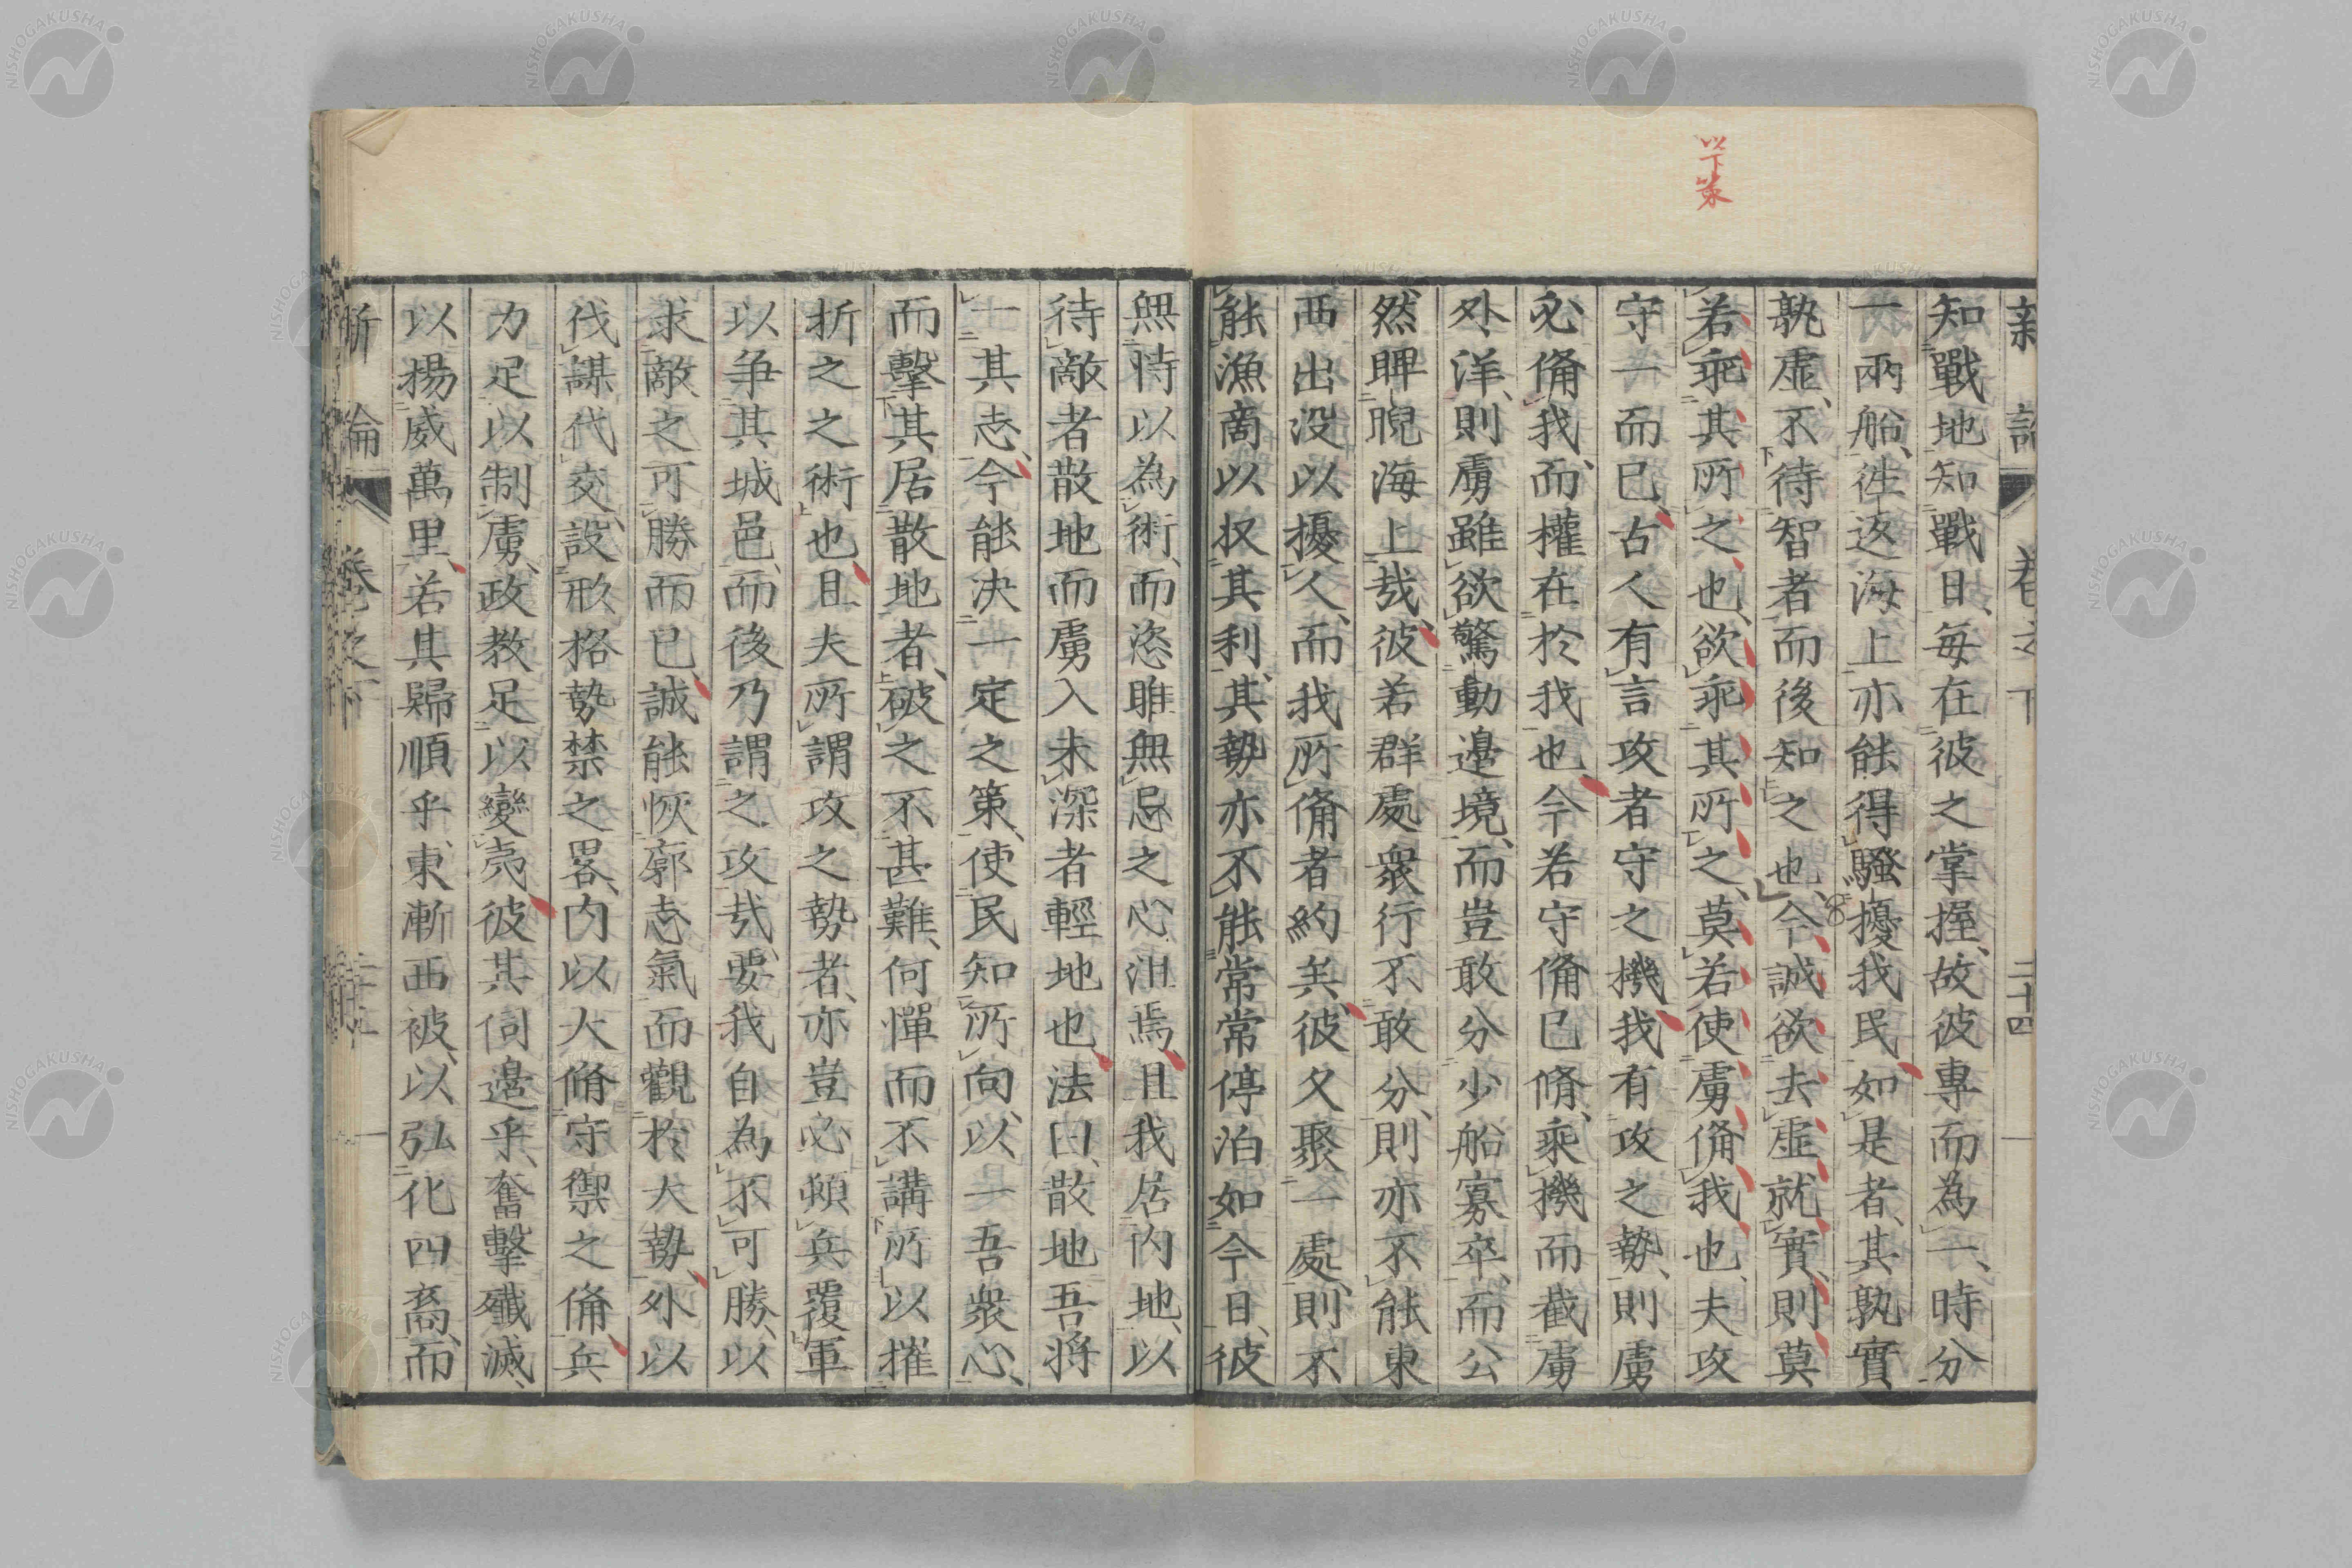 以下策
新論 卷之下 二十四
知戰地知戰日、每在彼之掌握、故彼專而為一、時分
一兩船、徃返海上、亦能得騷擾我民、如是者、其孰實
孰虛、不待智者而後知之也、今誠欲去虛就實、則莫
若乖其所之也、欲乖其所之、莫若使虜俻我也、夫攻
守一而已、古人有言攻者守之機、我有攻之勢、則虜
必俻我、而權在於我也、今若守俻已脩、乘機而截虜
外洋、則虜雖欲驚動邊境、而豈敢分少船寡卒、而公
然睥睨海上哉、彼若群處衆行不敢分、則亦不能東
西出没以擾人、而我所俻者約矣、彼久聚一處、則不
能漁商以収其利、其勢亦不能常常停泊如今日、彼
無恃以為術、而恣睢無忌之心沮焉、且我居内地、以
待敵者散地而虜入未深者輕地也、法曰、散地吾将
一其志、今能决一定之策、使民知所向、以一吾衆心、
而擊其居散地者、破之不甚難、何憚而不講所以摧
折之之術也、且夫所謂攻之勢者、亦豈必頓兵覆軍
以争其城邑、而後乃謂之攻㢤、要我自為不可勝、以
求敵之可勝而已、誠能恢廓志氣而觀於大勢、外以
伐謀代交、設形格勢禁之畧、内以大脩守禦之俻、兵
力足以制虜、政教足以變夷、彼其伺邊乎、奮擊殲滅、
以揚威萬里、若其歸順乎、東漸西被、以弘化四裔、而
新論 卷之下